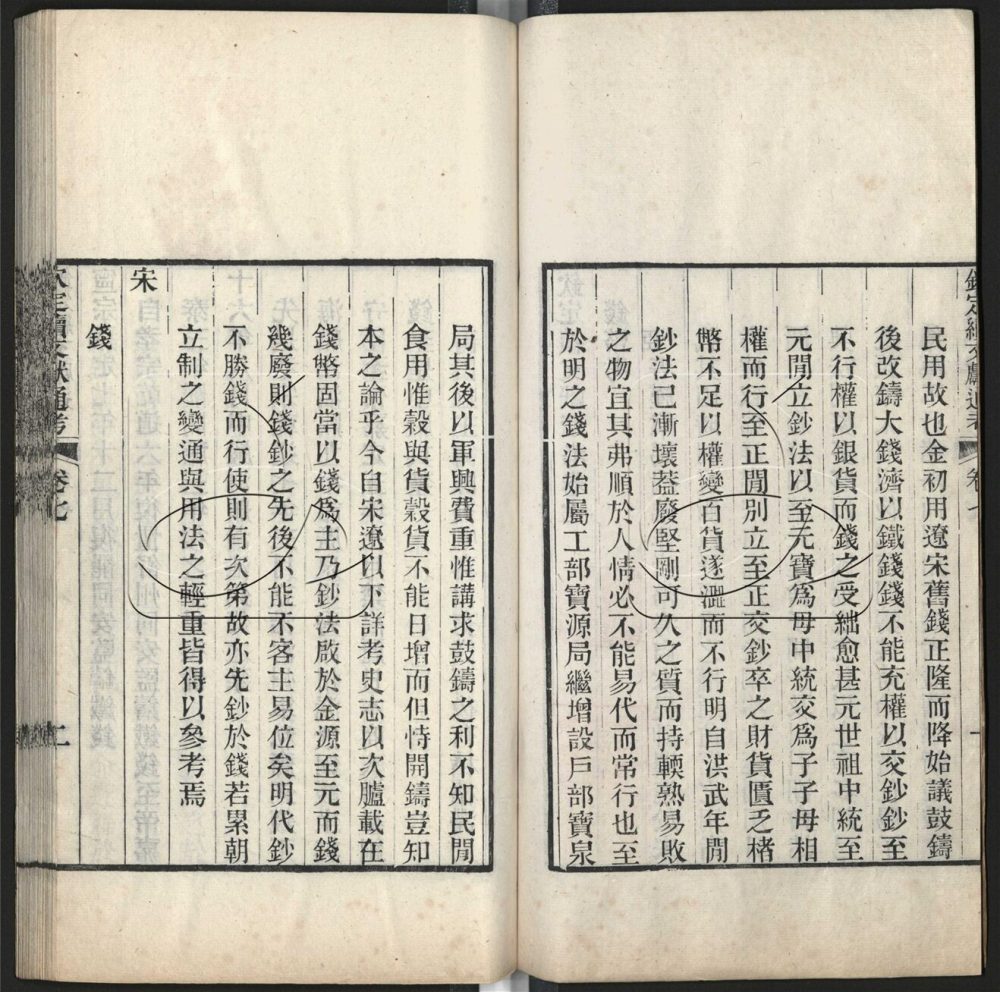 欽定續文獻通考 卷七 一
民用故也金初用遼宋舊錢正隆而降始議鼓鑄
後改鑄大錢濟以鐵錢錢不能充權以交鈔鈔至
不行權以銀貨而錢之受絀愈甚元世祖中統至
元閒立鈔法以至元寶爲母中統交爲子子母相
權而行至正閒別立至正交鈔卒之財貨匱乏楮
幣不足以權變百貨遂澀而不行明自洪武年閒
鈔法已漸壞葢廢堅剛可久之質而持輭熟易敗
之物宜其弗順於人情必不能易代而常行也至
於明之錢法始屬工部寶源局繼增設戸部寶泉
局其後以軍興費重惟講求鼓鑄之利不知民閒
食用惟穀與貨穀貨不能日增而但恃開鑄豈知
本之論乎今自宋遼以下詳考史志以次臚載在
錢幣固當以錢爲主乃鈔法啟於金源至元而錢
幾廢則錢鈔之先後不能不客主易位矣明代鈔
不勝錢而行使則有次第故亦先鈔於錢若累朝
立制之變通與用法之輕重皆得以參考焉
宋
錢
欽定續文獻通考 卷七 二